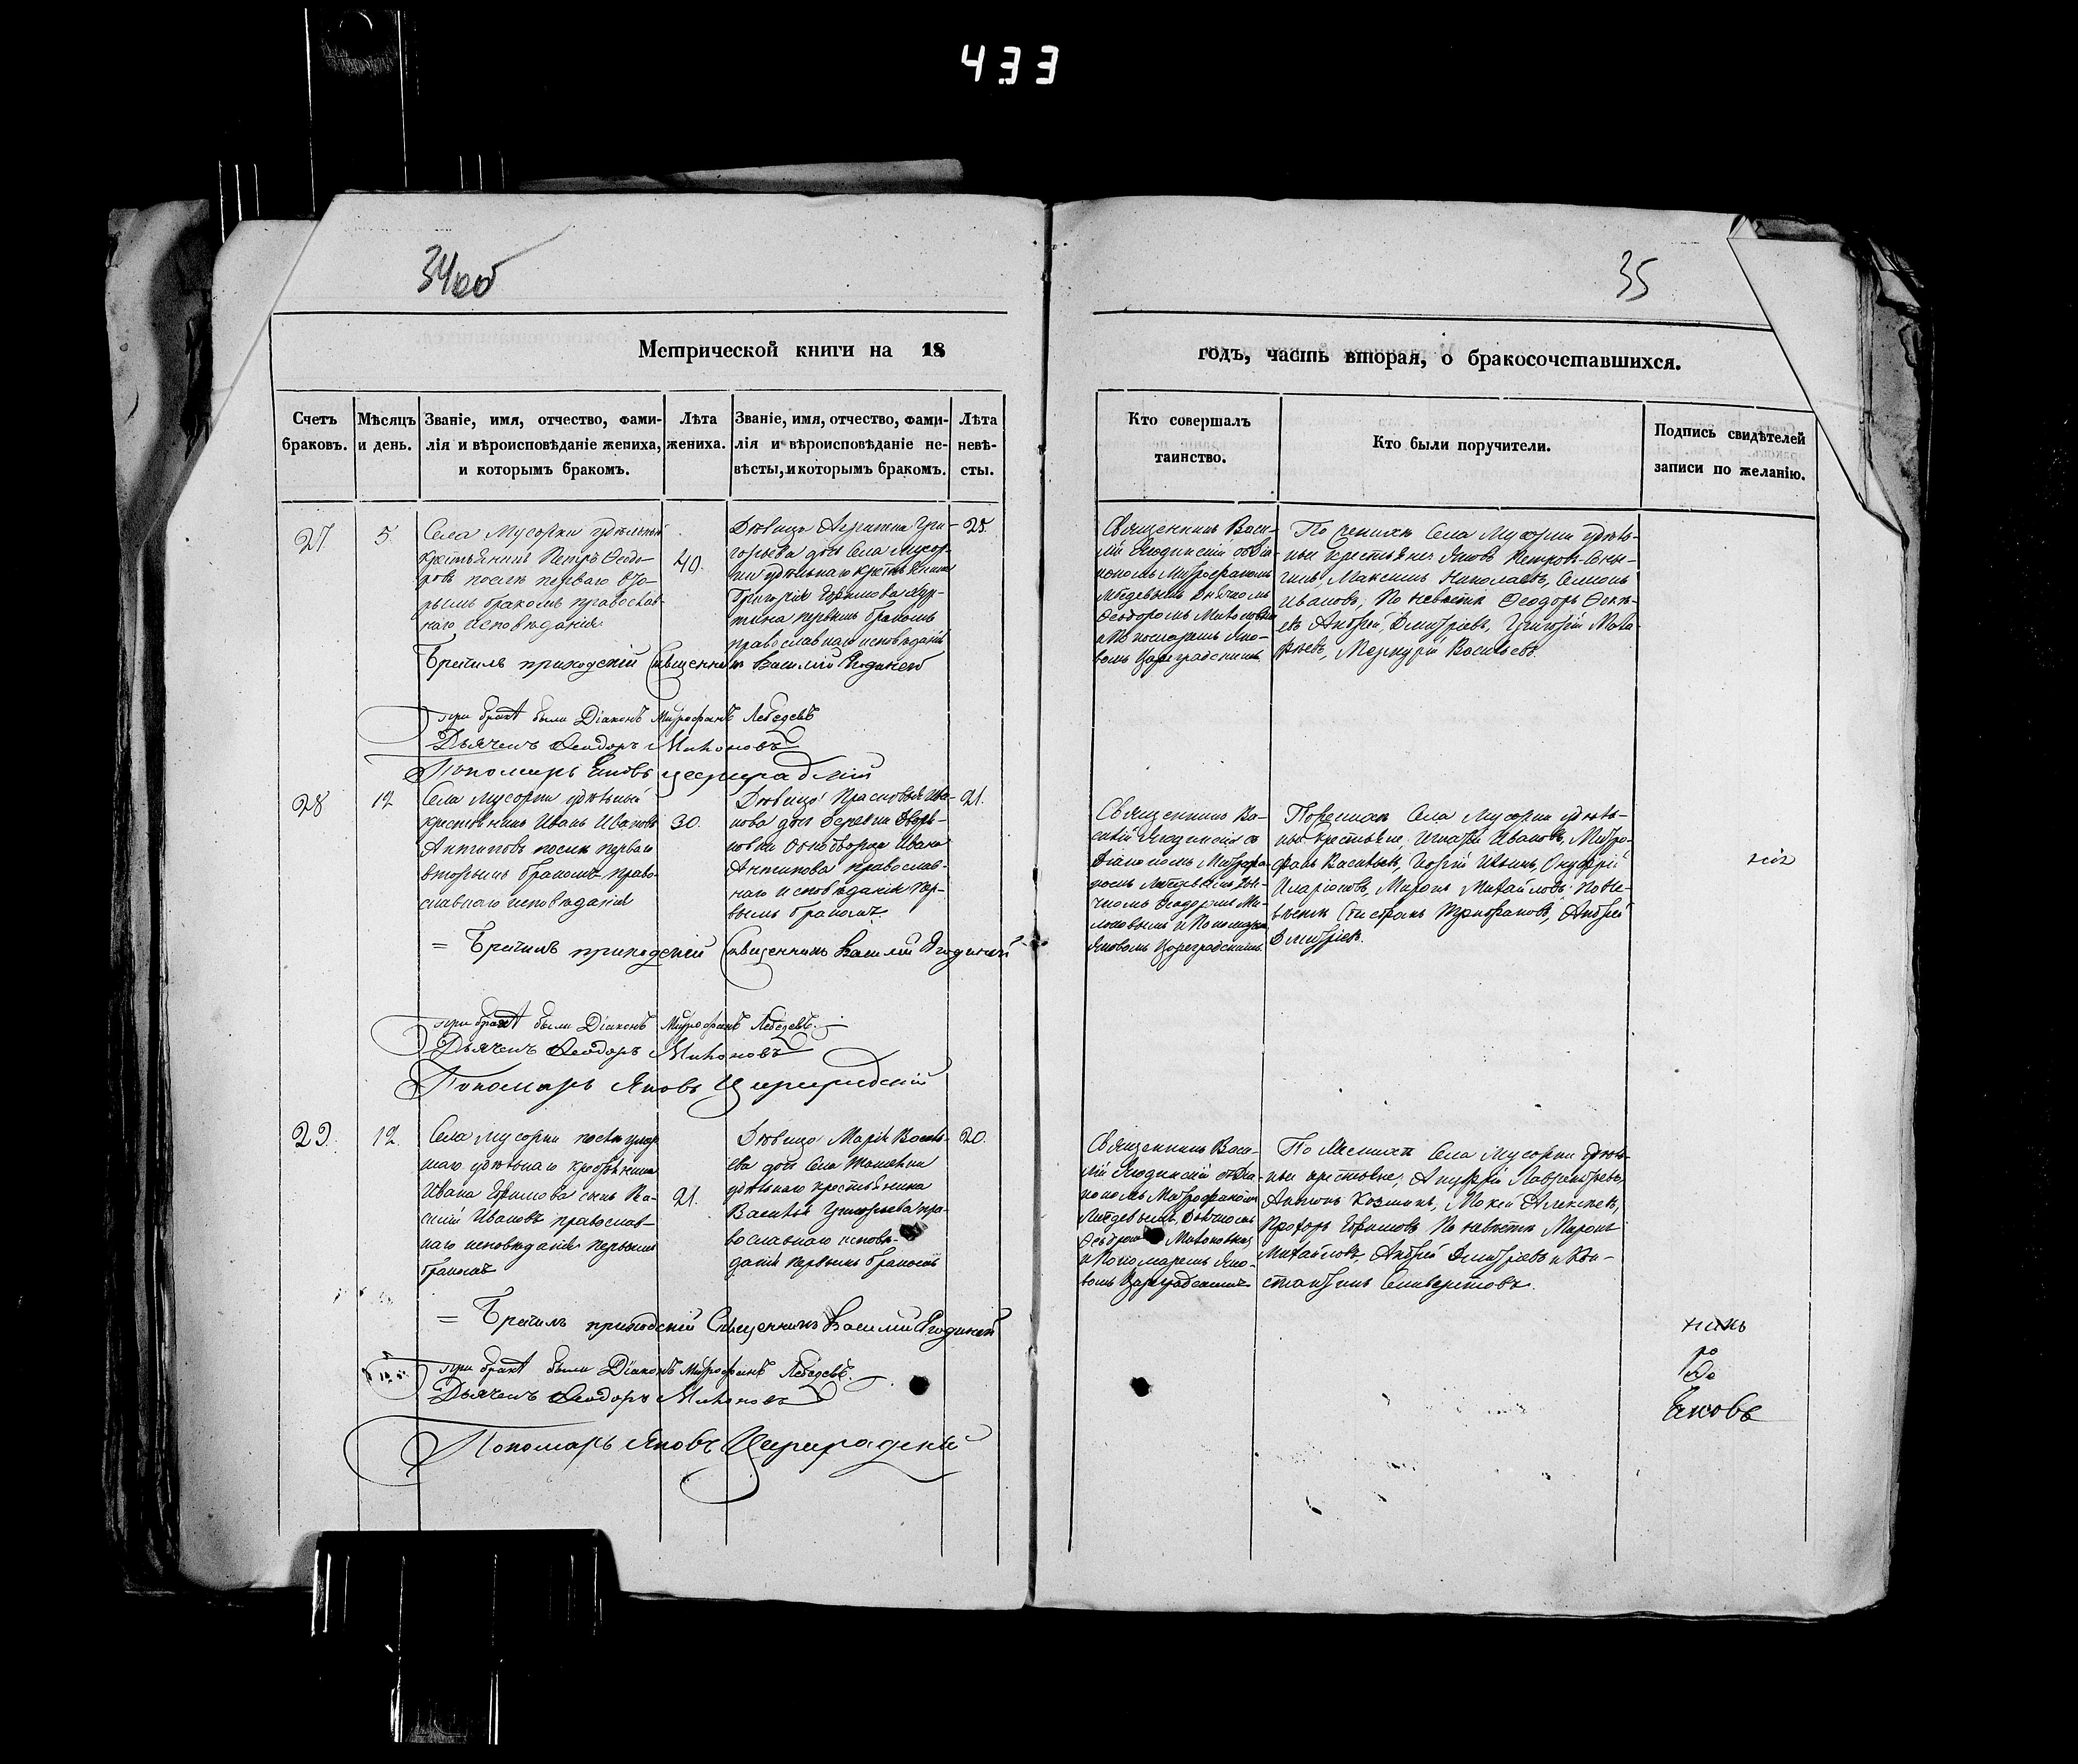 433
34об
35
Метрической книги на 18
годъ, часть вторая, о бракосочетавшихся.
Счетъ браковъ.
Мѣсяцъ и день.
Званіе, имя, отчество, фами-
лія и вѣроисповѣданіе жениха,
и которымъ бракомъ.
Лѣта
жениха.
Званіе, имя, отчество, фами-
лія и вѣроисповѣданіе не-
вѣсты, и которымъ бракомъ.
Лѣта
невѣ-
сты.
Кто совершалъ
таинство.
Кто были поручители.
Подпись свидѣтелей
записи по желанію.
27
5
Села Мусорки удѣльный
крестьянинъ Петръ Ѳеодо-
ровъ послѣ перваго вто-
рымъ бракомъ православ-
наго исповѣданія
40.
Дѣвица Агрипина Гри-
горьева дочь Села Мусор-
ки удѣльнаго крестьянина
Григорія Ефимова
первымъ бракомъ
православнаго исповѣданія
25.
Священникъ Васи-
лій Ягодинскій съ Діа-
кономъ Митрофаномъ
Лебедевымъ Дьячкомъ
Ѳеодоромъ
и Пономаремъ Яко-
вомъ Цареградскимъ
По женихѣ Села Мусорки удѣль-
ные крестьяне Яковъ Петровъ
Максимъ Николаевъ, Семенъ
Ивановъ; По невѣстѣ Ѳеодоръ
Андрей Дмитріевъ, Григорій
Меркурій Васильевъ.
Бретилъ приходскій Священникъ Василій Ягодинскій
при бракѣ были Діаконъ Митрофанъ Лебедевъ
Дьячекъ Ѳеодоръ
Пономарь Яковъ Цареградскій
28
12
Села Мусорки удѣльный
крестьянинъ Иванъ Ивановъ
Антиповъ послѣ перваго
вторымъ бракомъ право-
славнаго исповѣданія
30.
Дѣвица Прасковья Ива-
нова дочь деревни Дворя-
новки Однодворца Ивана
Антипова православ-
наго исповѣданія пер-
вымъ бракомъ
21.
Священникъ Ва-
силій Ягодинскій съ
Діакономъ Митрофа-
номъ Лебедевымъ Дья-
чкомъ Ѳеодоромъ
и Пономаремъ
Яковомъ Цареградскимъ.
По женихѣ Села Мусорки удѣль-
ные Крестьяне, Игнатій Ивановъ, Митро-
фанъ Васильевъ, Ильинъ, Онуфрій
Иларіоновъ, Миронъ Михайловъ; По не-
вѣстѣ Андрей
Дмитріевъ.
= Бретилъ приходскій Священникъ Василій Ягодинскій
при бракѣ были Діаконъ Митрофанъ Лебедевъ.
Дьячекъ Ѳеодоръ
Пономарь Яковъ Цареградскій
29.
12.
Села Мусорки
удѣльнаго крестьянина
Ивана Ефимова сынъ Ва-
силій Ивановъ православ-
наго исповѣданія первымъ
бракомъ
21.
Дѣвица Марія Василь-
ева дочь Села
удѣльнаго крестьянина
Василья Григорьева пра-
вославнаго исповѣ-
данія первымъ бракомъ
20.
Священникъ Васи-
лій Ягодинскій съ Діа-
кономъ Митрофаномъ
Лебедевымъ, Дьячкомъ
и Пономаремъ Яко-
вомъ Цареградскимъ
По женихѣ Села Мусорки удѣль-
ные крестьяне, Лаврентьевъ,
Антонъ Козминъ, Мокій Алексѣевъ,
Прохоръ Ефимовъ По невѣстѣ Миронъ
Михайловъ, Андрей Дмитріевъ и Кон-
стантинъ Селиверстовъ.
= Бретилъ приходскій Священникъ Василій Ягодинскій
при бракѣ были Діаконъ Митрофанъ Лебедевъ.
Дьячекъ Ѳеодоръ
Пономарь Яковъ Цареградскій
Яковъ